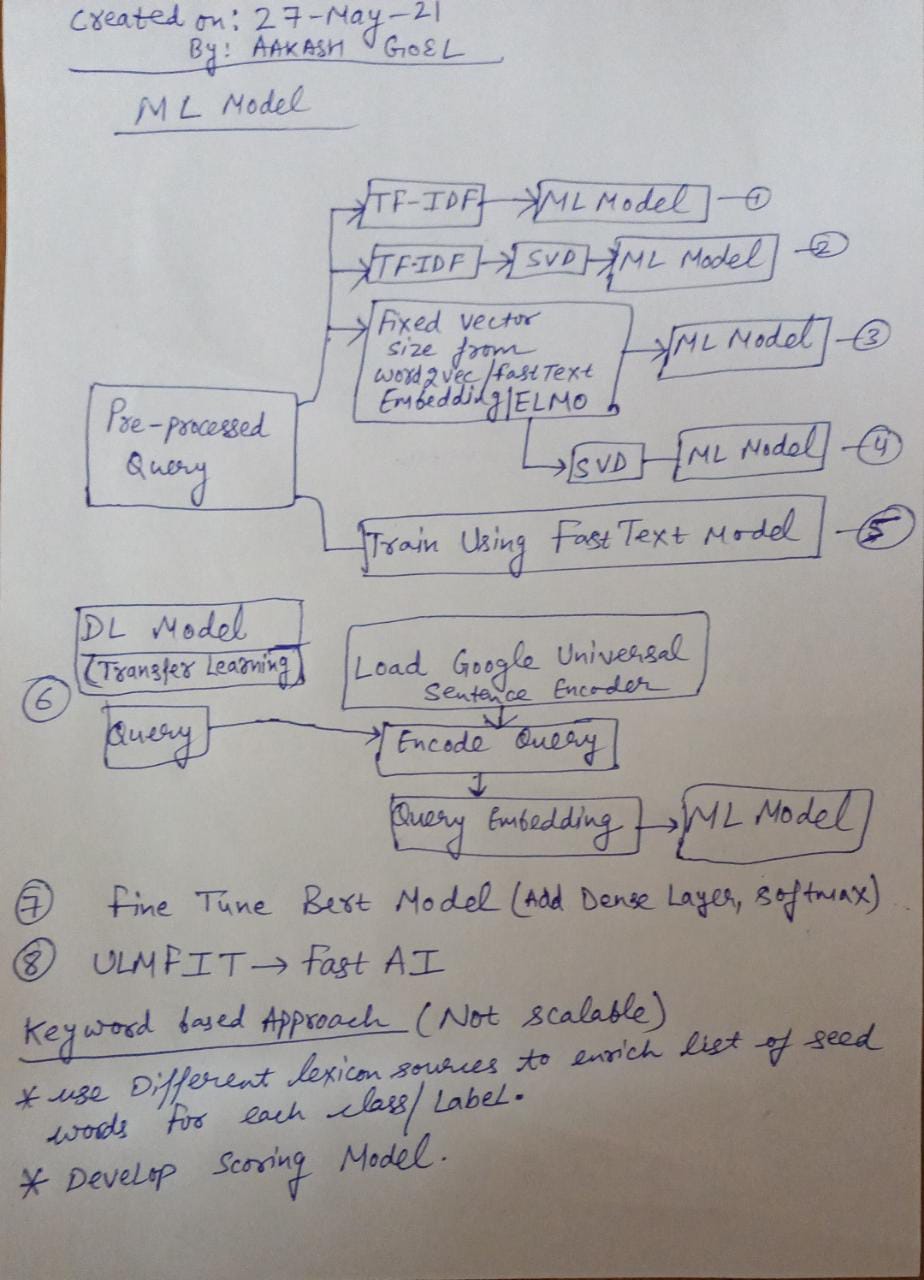 Created on: 27-May-21
By: AAKASH GOEL
ML Model
TF-IDF
ML Model
1
TF-IDF
SVD
ML Model
2
Fixed vector
size from
word2vec/fastText
Embedding/ELMO
ML Model
3
SVD
ML Model
4
Pre-processed
Query
Train Using FastText Model
5
DL Model
(Transfer Learning)
6
Load Google Universal
Sentence Encoder
Query
Encode Query
Query Embedding
ML Model
7 Fine Tune Bert Model (Add Dense Layer, softmax)
8 ULMFIT → Fast AI
Keyword based Approach (Not scalable)
* use Different lexicon sources to enrich list of seed
words for each class/Label.
* Develop Scoring Model.